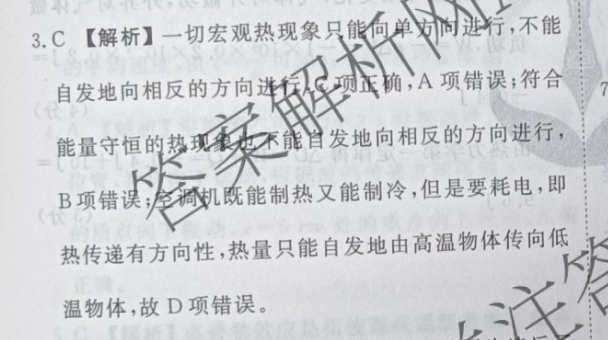 3.C 【解析】一切宏观热现象只能向单方向进行,不能
自发地向相反的方向进行,C项正确,A 项错误;符合
能量守恒的热现象也不能自发地向相反的方向进行,
B项错误;空调机既能制热又能制冷,但是要耗电,即
热传递有方向性,热量只能自发地由高温物体传向低
温物体,故 D 项错误。
答案解析网
注答
7